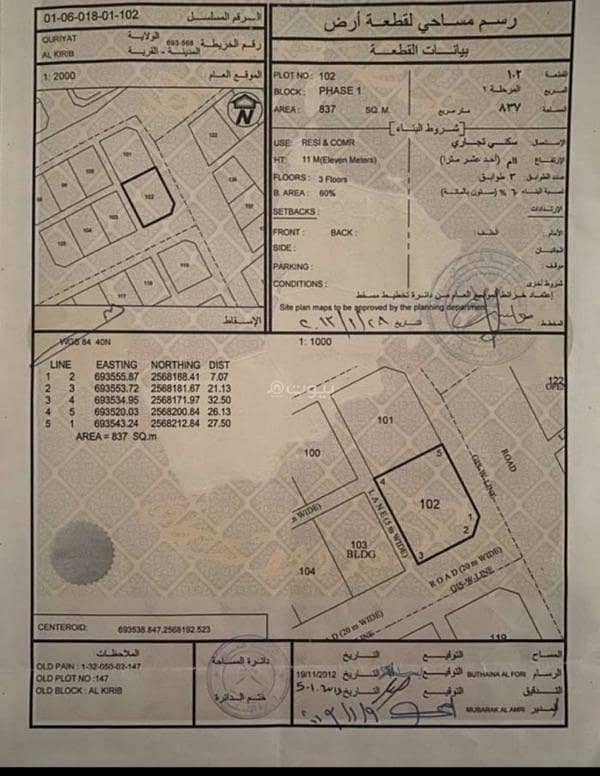 01-06-018-01-102 الـرقم المسلسل
رسم مساحي لقطعة أرض
QURIYAT الولاية
693-568 رقم الخريطة
AL KIRIB المدينة - القرية
بيانات القطعة
1: 2000 الموقع العام
PLOT NO: 102 ١٠٢ القطعة
BLOCK: PHASE 1 المرحلة ١ المربع
AREA: 837 SQ. M. متر مربع ٨٣٧ المساحة
شروط البناء
USE: RESI & COMR سكني تجاري الإستعمال
HT: 11 M(Eleven Meters) ١١م (أحد عشر مترا) الإرتفاع
FLOORS: 3 Floors ٣ طوابق عدد الطوابق
B. AREA: 60% ٦٠% (ستون بالمائة) نسبة البناء
SETBACKS: الإرتدادات
FRONT: BACK: الخلف: الأمام
SIDE: الجانبان
PARKING: موقف
CONDITIONS: شروط أخرى
إعتماد خرائط الموقع العام من دائرة تخطيط مسقط
Site plan maps to be approved by the planning department
المخطط تاريخ ٢٠١٣/١/٢٨
N
122
101
102
136
137
103
104
105
119
118
117
الإسقاط
WGS 84 40N
1: 1000
LINE EASTING NORTHING DIST
1 2 693555.87 2568188.41 7.07
2 3 693553.72 2568181.67 21.13
3 4 693534.95 2568171.97 32.50
4 5 693520.03 2568200.84 26.13
5 1 693543.24 2568212.84 27.50
AREA = 837 SQ.m
بيوت
122
OPE
101
100
5
4
102
1
2
3
GIS-W-LINE
ROAD
LANE (5 m WIDE)
m WIDE)
103
BLDG
104
ROAD (20 m WIDE)
GIS-W-LINE
D (20 m WIDE)
LINE
119
CENTEROID: 693538.847,2568192.523
الملاحظات
OLD PAIN : 1-32-050-02-147
OLD PLOT NO :147
OLD BLOCK : AL KIRIB
دائرة المساحة
ختم الدائرة
التاريخ التوقيع المساح
19/11/2012 التاريخ التوقيع BUTHAINA AL FORI الرسام
5-1-2013 التاريخ التوقيع التدقيق
التوقيع MUBARAK AL AMRI المدير